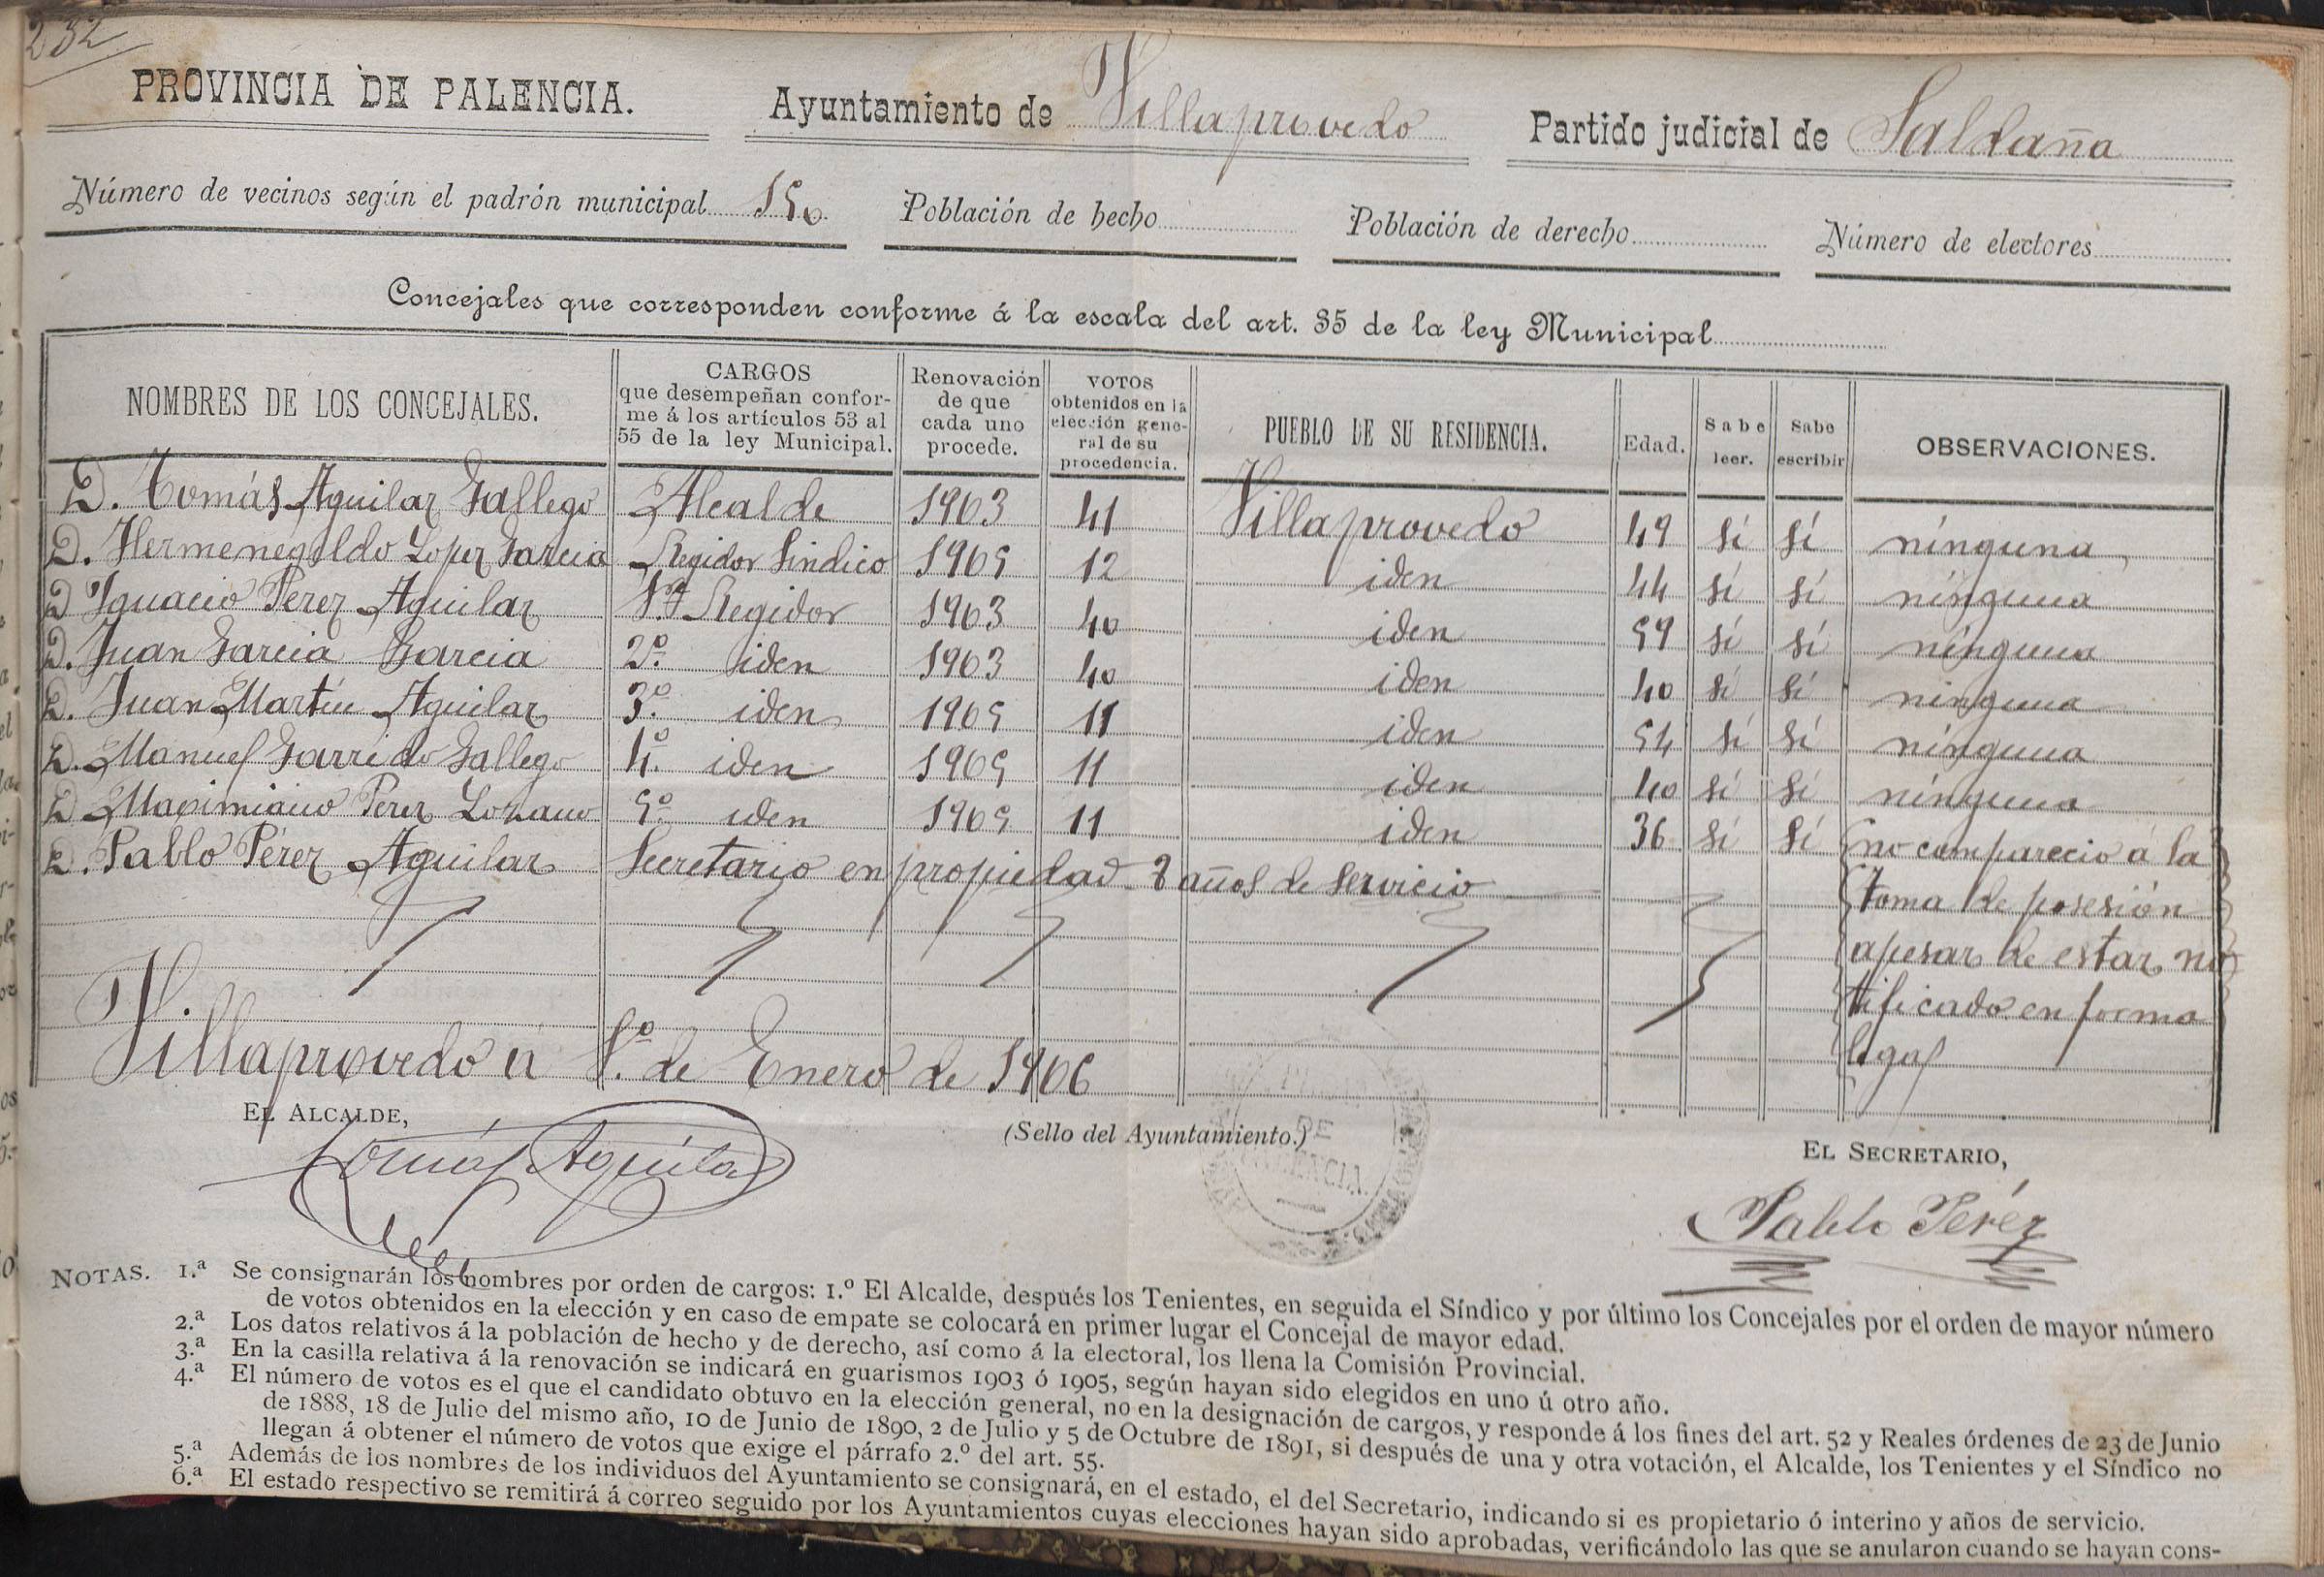 232
PROVINCIA DE PALENCIA. Ayuntamiento de Villaprovedo Partido judicial de Saldaña
Número de vecinos según el padrón municipal 150 Población de hecho Población de derecho Número de electores
Concejales que corresponden conforme á la escala del art. 35 de la ley Municipal
NOMBRES DE LOS CONCEJALES. CARGOS que desempeñan conforme á los artículos 53 al 55 de la ley Municipal. Renovación de que cada uno procede. VOTOS obtenidos en la elección general de su procedencia. PUEBLO DE SU RESIDENCIA. Edad. Sabe leer. Sabe escribir OBSERVACIONES.
D. Tomás Aguilar Gallego Alcalde 1903 41 Villaprovedo 49 sí sí ninguna
D. Hermenegildo Lopez Garcia Regidor Sindico 1905 12 iden 44 sí sí ninguna
D Ignacio Pérez Aguilar 1.º Regidor 1903 40 iden 59 sí sí ninguna
D. Juan Garcia Garcia 2.º iden 1903 40 iden 40 sí sí ninguna
D. Juan Martín Aguilar 3.º iden 1905 11 iden 54 sí sí ninguna
D. Manuel Garrido Gallego 4.º iden 1905 11 iden 40 sí sí ninguna
D Maximiano Perez Lozano 5.º iden 1905 11 iden 36 sí sí no comparecio á la
D. Pablo Pérez Aguilar Secretario en propiedad 8 años de servicio toma de posesión
apesar de estar no
tificado en forma
legal
Villaprovedo á 1.º de Enero de 1906
EL ALCALDE,
(Sello del Ayuntamiento.)
DE
EL SECRETARIO,
Tomás Aguilar
Pablo Pérez
NOTAS. 1.ª Se consignarán los nombres por orden de cargos: 1.º El Alcalde, después los Tenientes, en seguida el Síndico y por último los Concejales por el orden de mayor número
de votos obtenidos en la elección y en caso de empate se colocará en primer lugar el Concejal de mayor edad.
2.ª Los datos relativos á la población de hecho y de derecho, así como á la electoral, los llena la Comisión Provincial.
3.ª En la casilla relativa á la renovación se indicará en guarismos 1903 ó 1905, según hayan sido elegidos en uno ú otro año.
4.ª El número de votos es el que el candidato obtuvo en la elección general, no en la designación de cargos, y responde á los fines del art. 52 y Reales órdenes de 23 de Junio
de 1888, 18 de Julio del mismo año, 10 de Junio de 1890, 2 de Julio y 5 de Octubre de 1891, si después de una y otra votación, el Alcalde, los Tenientes y el Síndico no
llegan á obtener el número de votos que exige el párrafo 2.º del art. 55.
5.ª Además de los nombres de los individuos del Ayuntamiento se consignará, en el estado, el del Secretario, indicando si es propietario ó interino y años de servicio.
6.ª El estado respectivo se remitirá á correo seguido por los Ayuntamientos cuyas elecciones hayan sido aprobadas, verificándolo las que se anularon cuando se hayan cons-